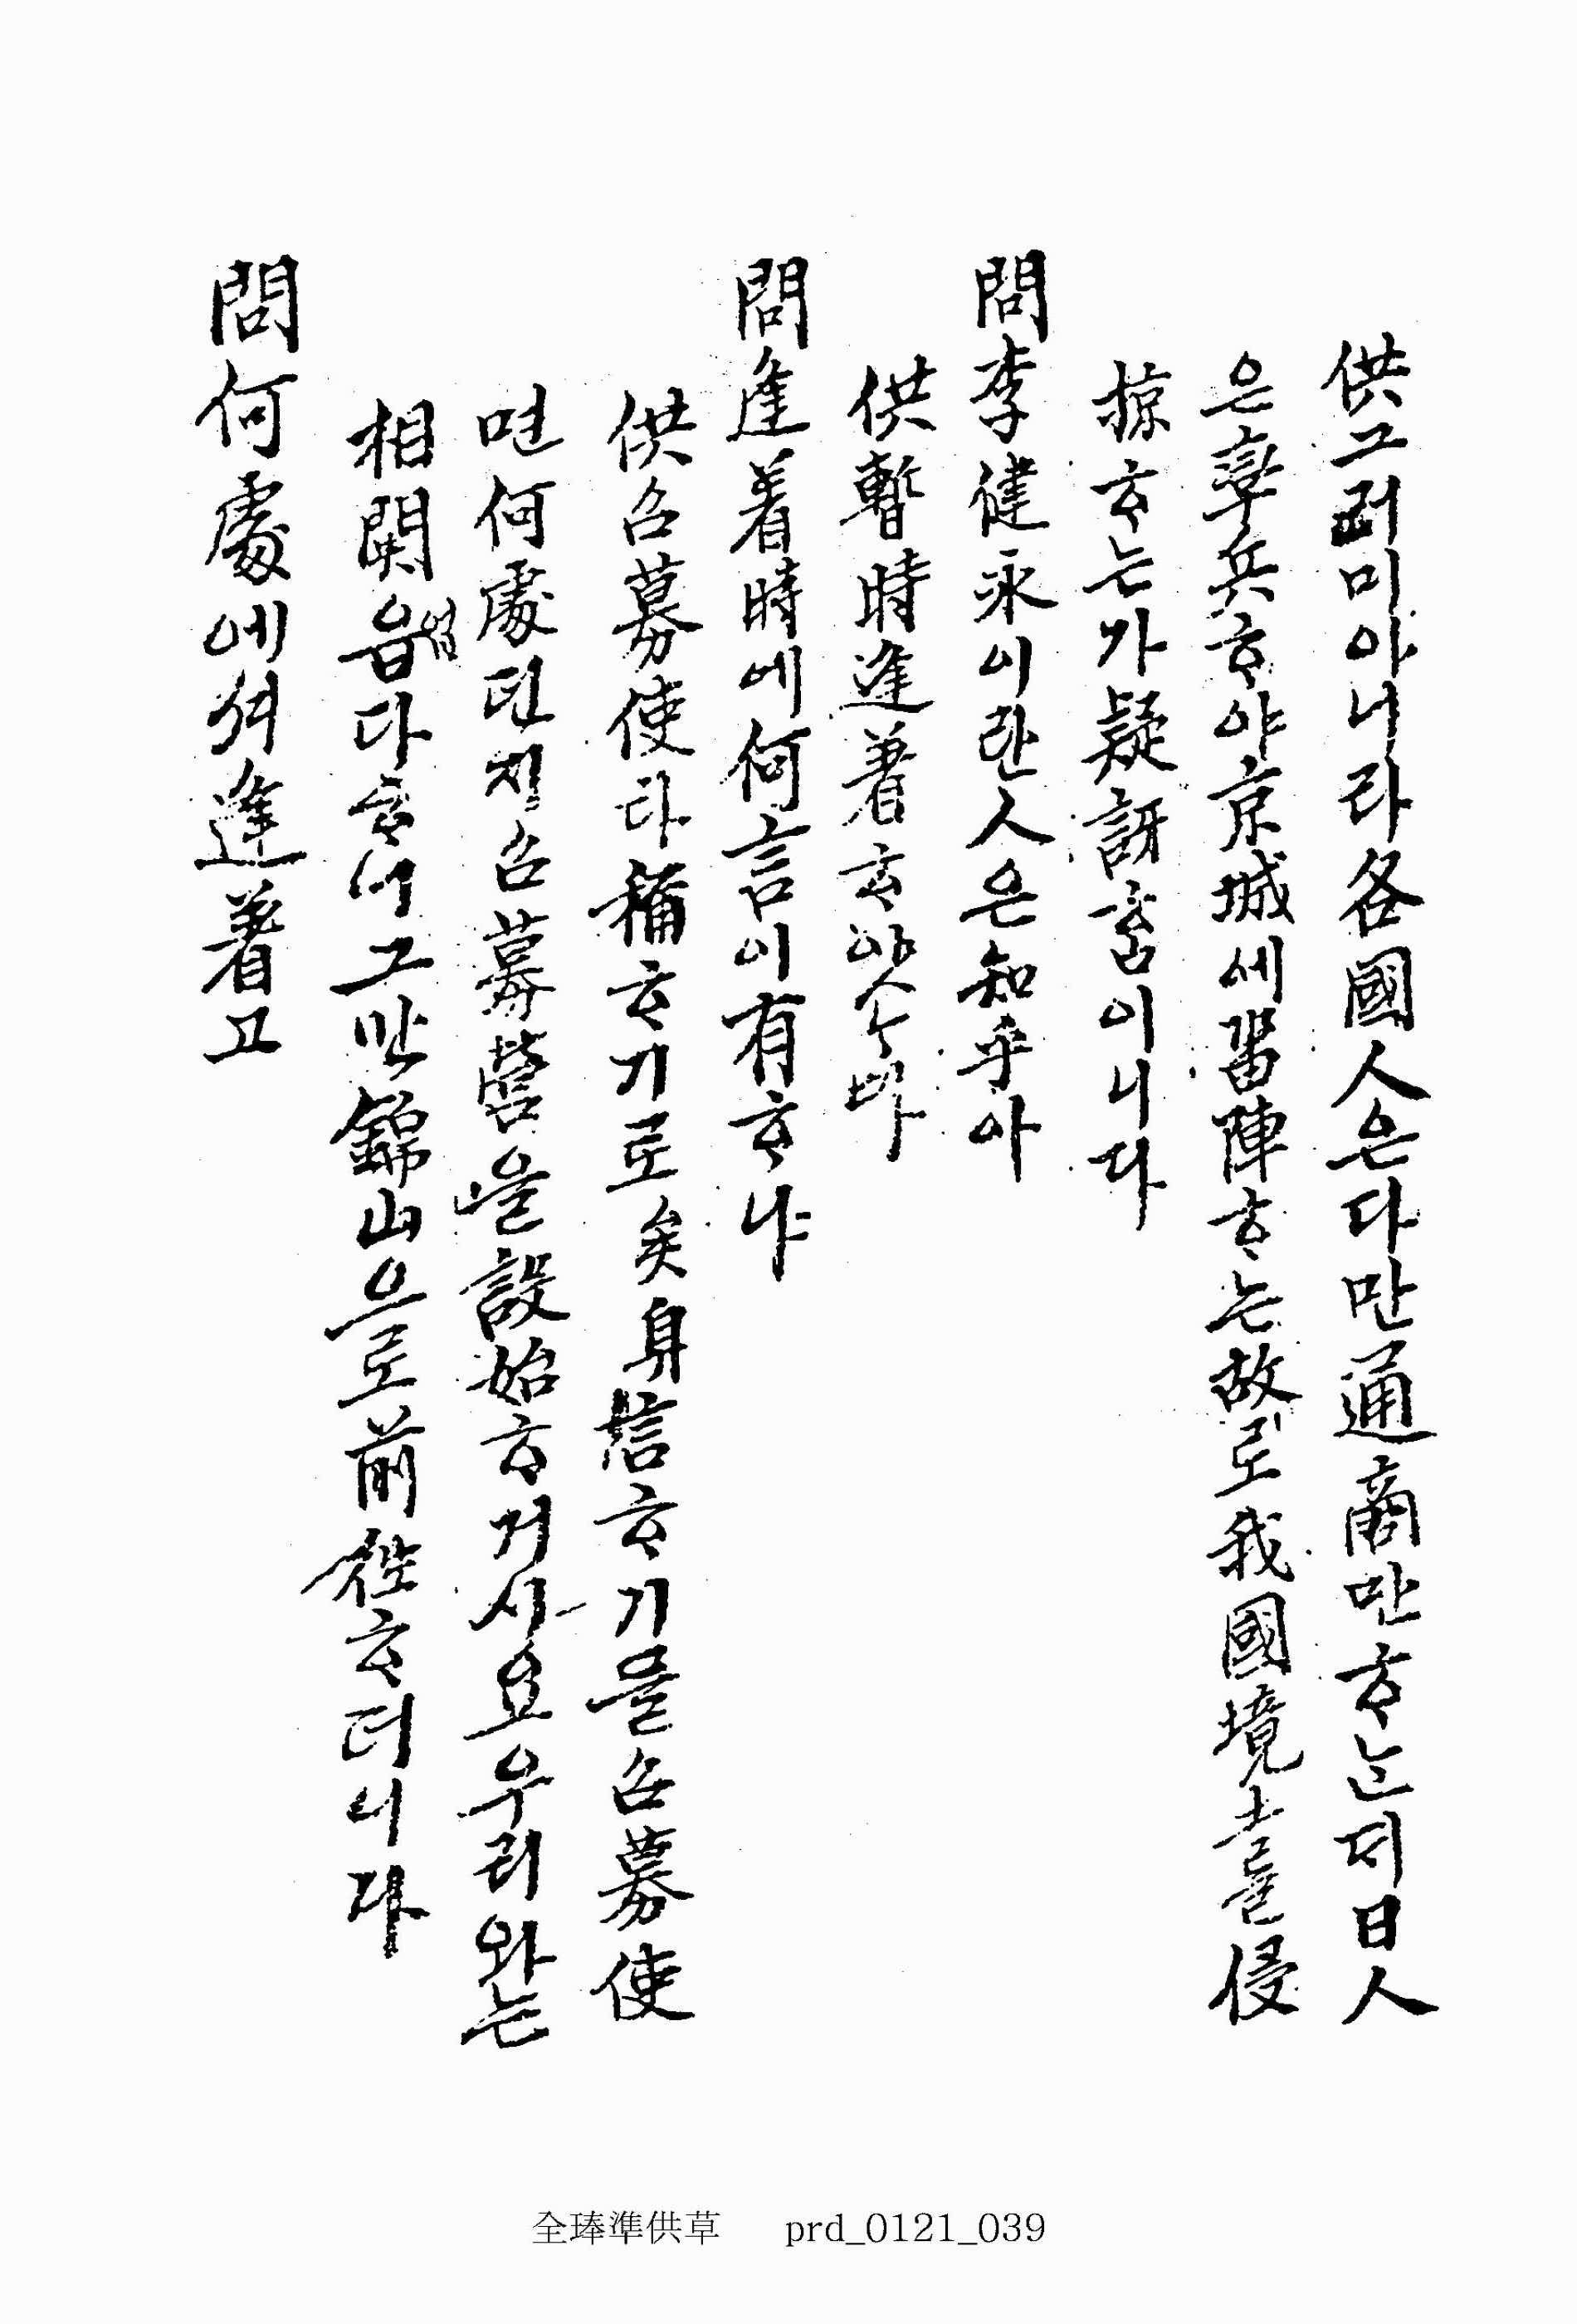 供그러미아니라各國人은다만通商만ᄒᆞᄂᆞᆫ디日人
은率兵ᄒᆞ야京城에留陣ᄒᆞ는故로我國境土를侵
掠ᄒᆞ는가疑訝홈이니다
問李健永이란人은知乎아
供暫時逢著ᄒᆞ얏ᄉᆞᆸᄂᆡ다
問逢着時에何言이有ᄒᆞ냐
供召募使라稱ᄒᆞ기로矣身信ᄒᆞ기를召募使
면何處던지召募營을設始ᄒᆞ거시요우리와는
相関읍다ᄒᆞ니그만錦山으로前往ᄒᆞ더니다
問何處에셔逢着고
全琫準供草 prd_0121_039